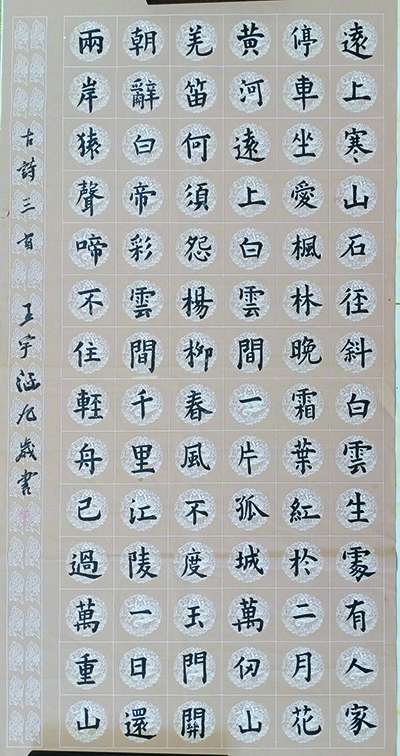 遠上寒山石径斜白雲生處有人家
停車坐愛楓林晚霜葉紅於二月花
黃河遠上白雲間一片孤城萬仞山
羌笛何須怨楊柳春風不度玉門關
朝辭白帝彩雲間千里江陵一日還
兩岸猿聲啼不住輕舟已過萬重山
古詩三首 王宇九歲書